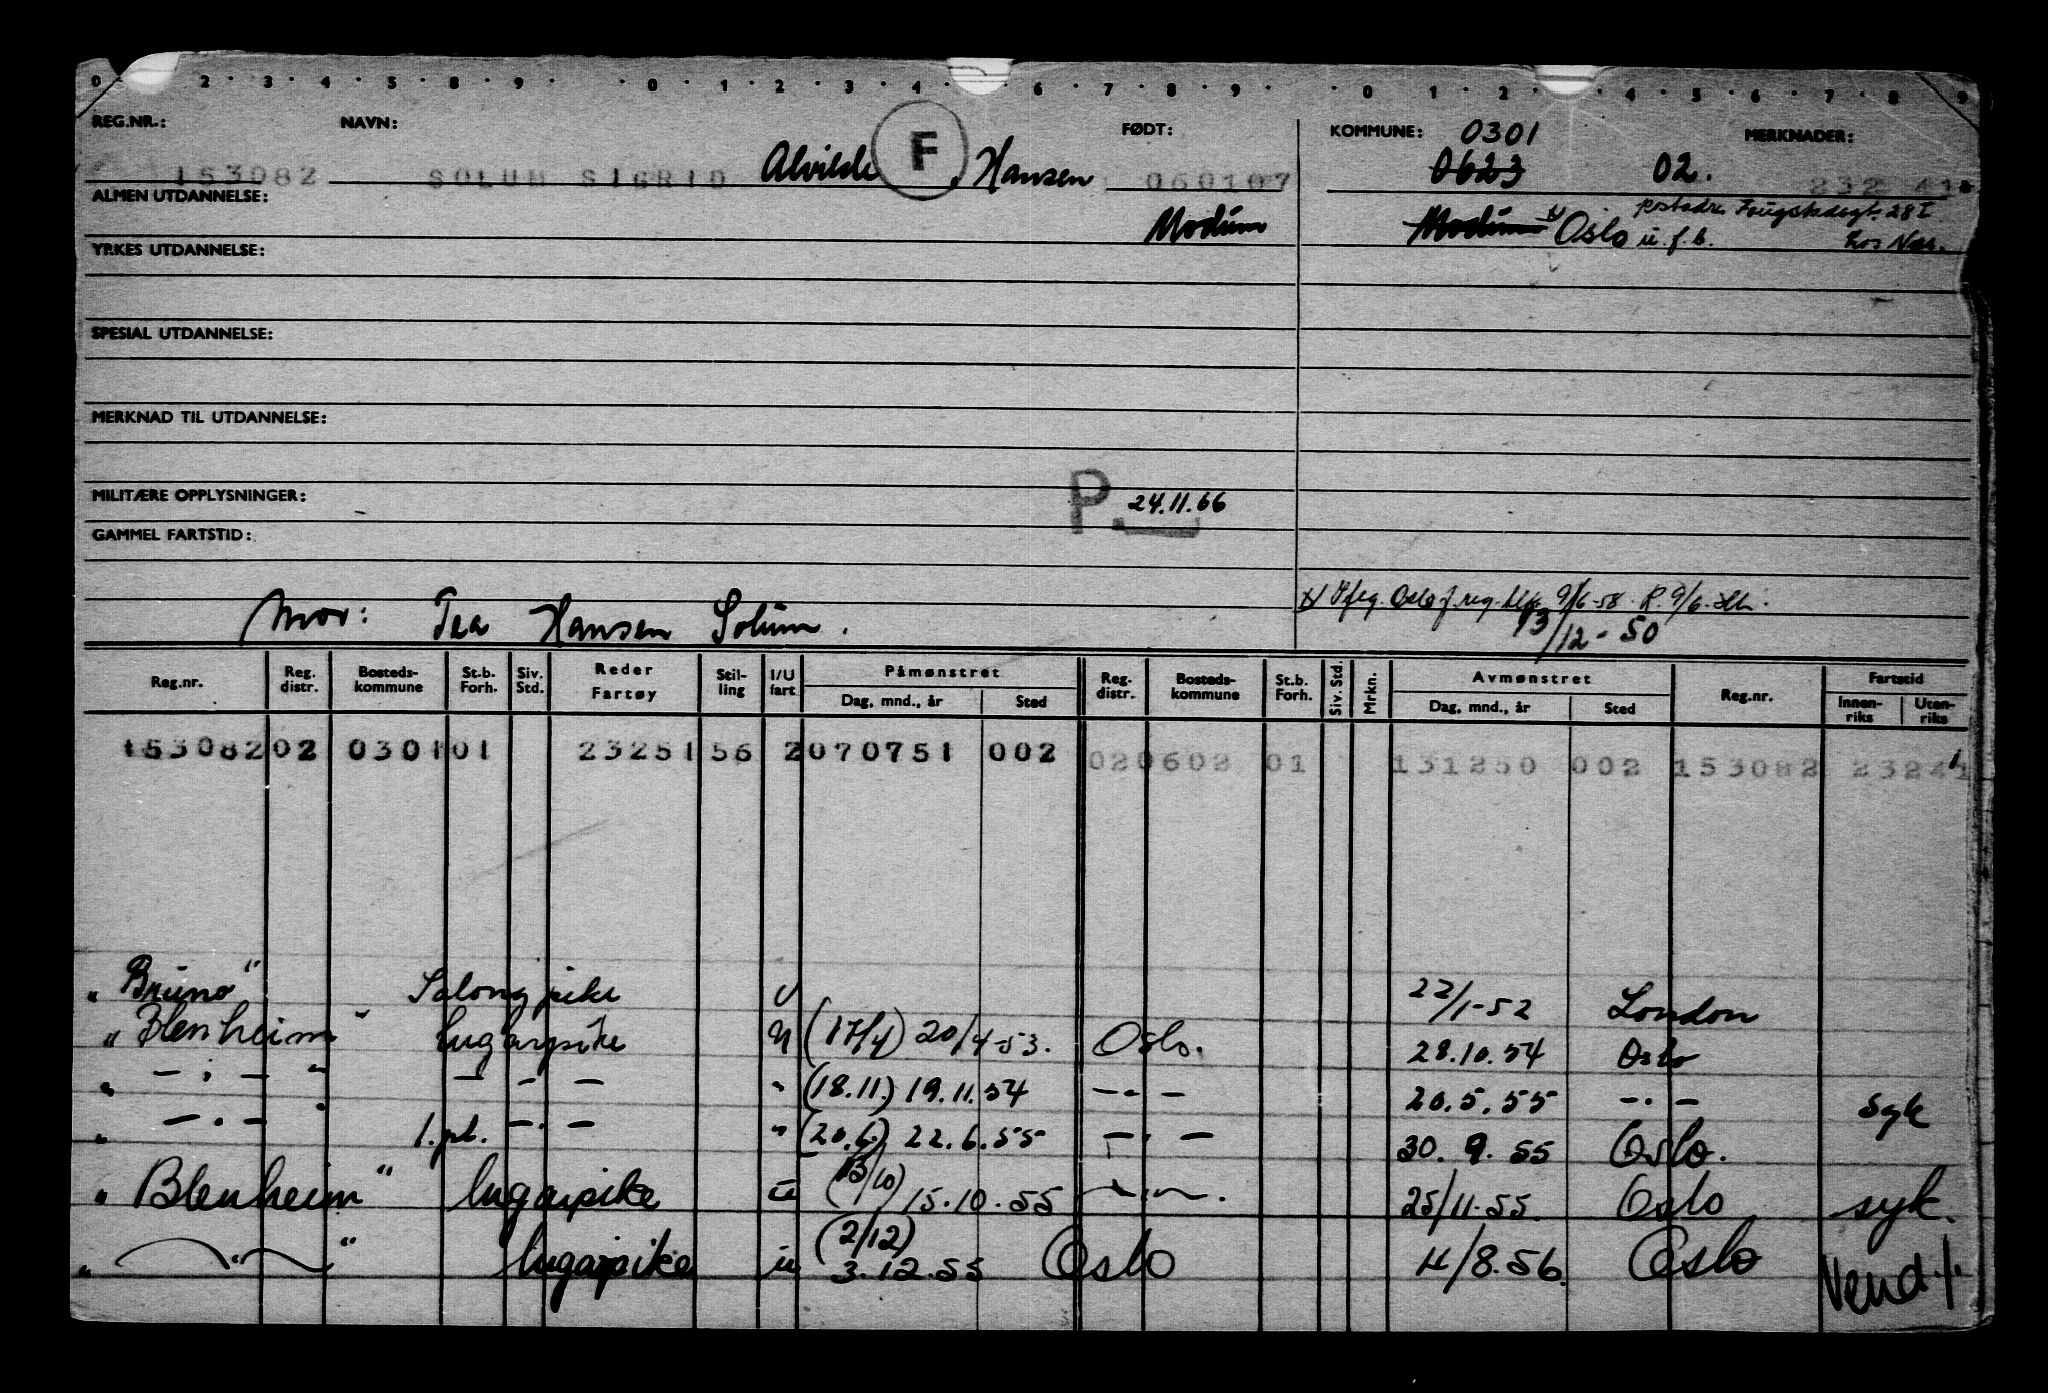 0 2 3 4 5 8 9 0 1 2 3 4 6 7 8 9 0 1 2 4 5 6 7 8 9
REG.NR.: NAVN: FØDT: KOMMUNE: 0301 MERKNADER:
153082 SOLUM SIGRID Alvilde F Hansen 060107 0623 02. 232 41
ALMEN UTDANNELSE: Modum Modum x Oslo u.f.b. postadr. 28 I
hos
YRKES UTDANNELSE:
SPESIAL UTDANNELSE:
MERKNAD TIL UTDANNELSE:
MILITÆRE OPPLYSNINGER: P. 24.11.66
GAMMEL FARTSTID:
x Oslo f. reg. 9/6-58. R. 9/6.
Mor: Tea Hansen Solum. 13/12-50
Reg.nr. Reg. distr. Bosteds-kommune St.b. Forh. Siv. Std. Reder Fartøy Stil-ling I/U fart Påmønstret Dag, mnd., år Sted Reg. distr. Bosteds-kommune St.b. Forh. Siv. Std. Mrkn. Avmønstret Dag, mnd., år Sted Reg.nr. Fartstid Innen-riks Uten-riks
153082 02 0301 01 23251 56 2 070751 002 02 0602 01 131250 002 153082 23241
„Bruno" Salongpike U 22/1-52 London
„Blenheim" lugarpike U (17/4) 20/4-53. Oslo. 28.10.54 Oslo
„ - . - " - - - " (18.11.) 19.11.54 - . - 20.5.55 - . - syk
„ - . - " 1.pb. - . - " (20.6.) 22.6.55 - . - 30.9.55 Oslo.
„Blenheim" lugarpike u (13/10) 15.10.55 - " - 25/11-55. Oslo syk.
„ - " - " lugarpike u (2/12) 3.12.55 Oslo 4/8.56. Oslo Vend./.